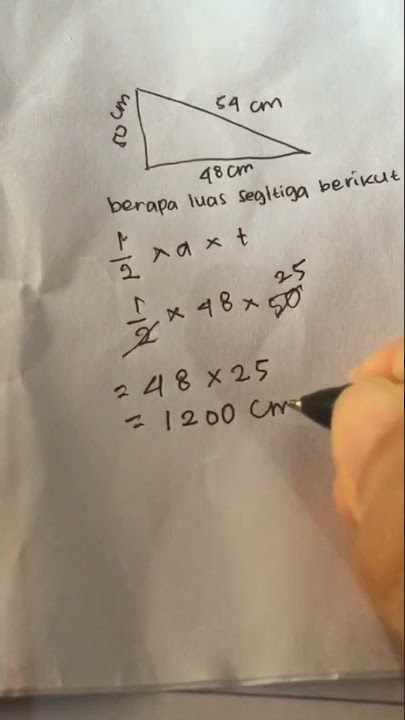 54 cm
50 cm
48 cm
berapa luas segitiga berikut
1/2 x a x t
1/2 x 48 x 50 25
= 48 x 25
= 1200 cm